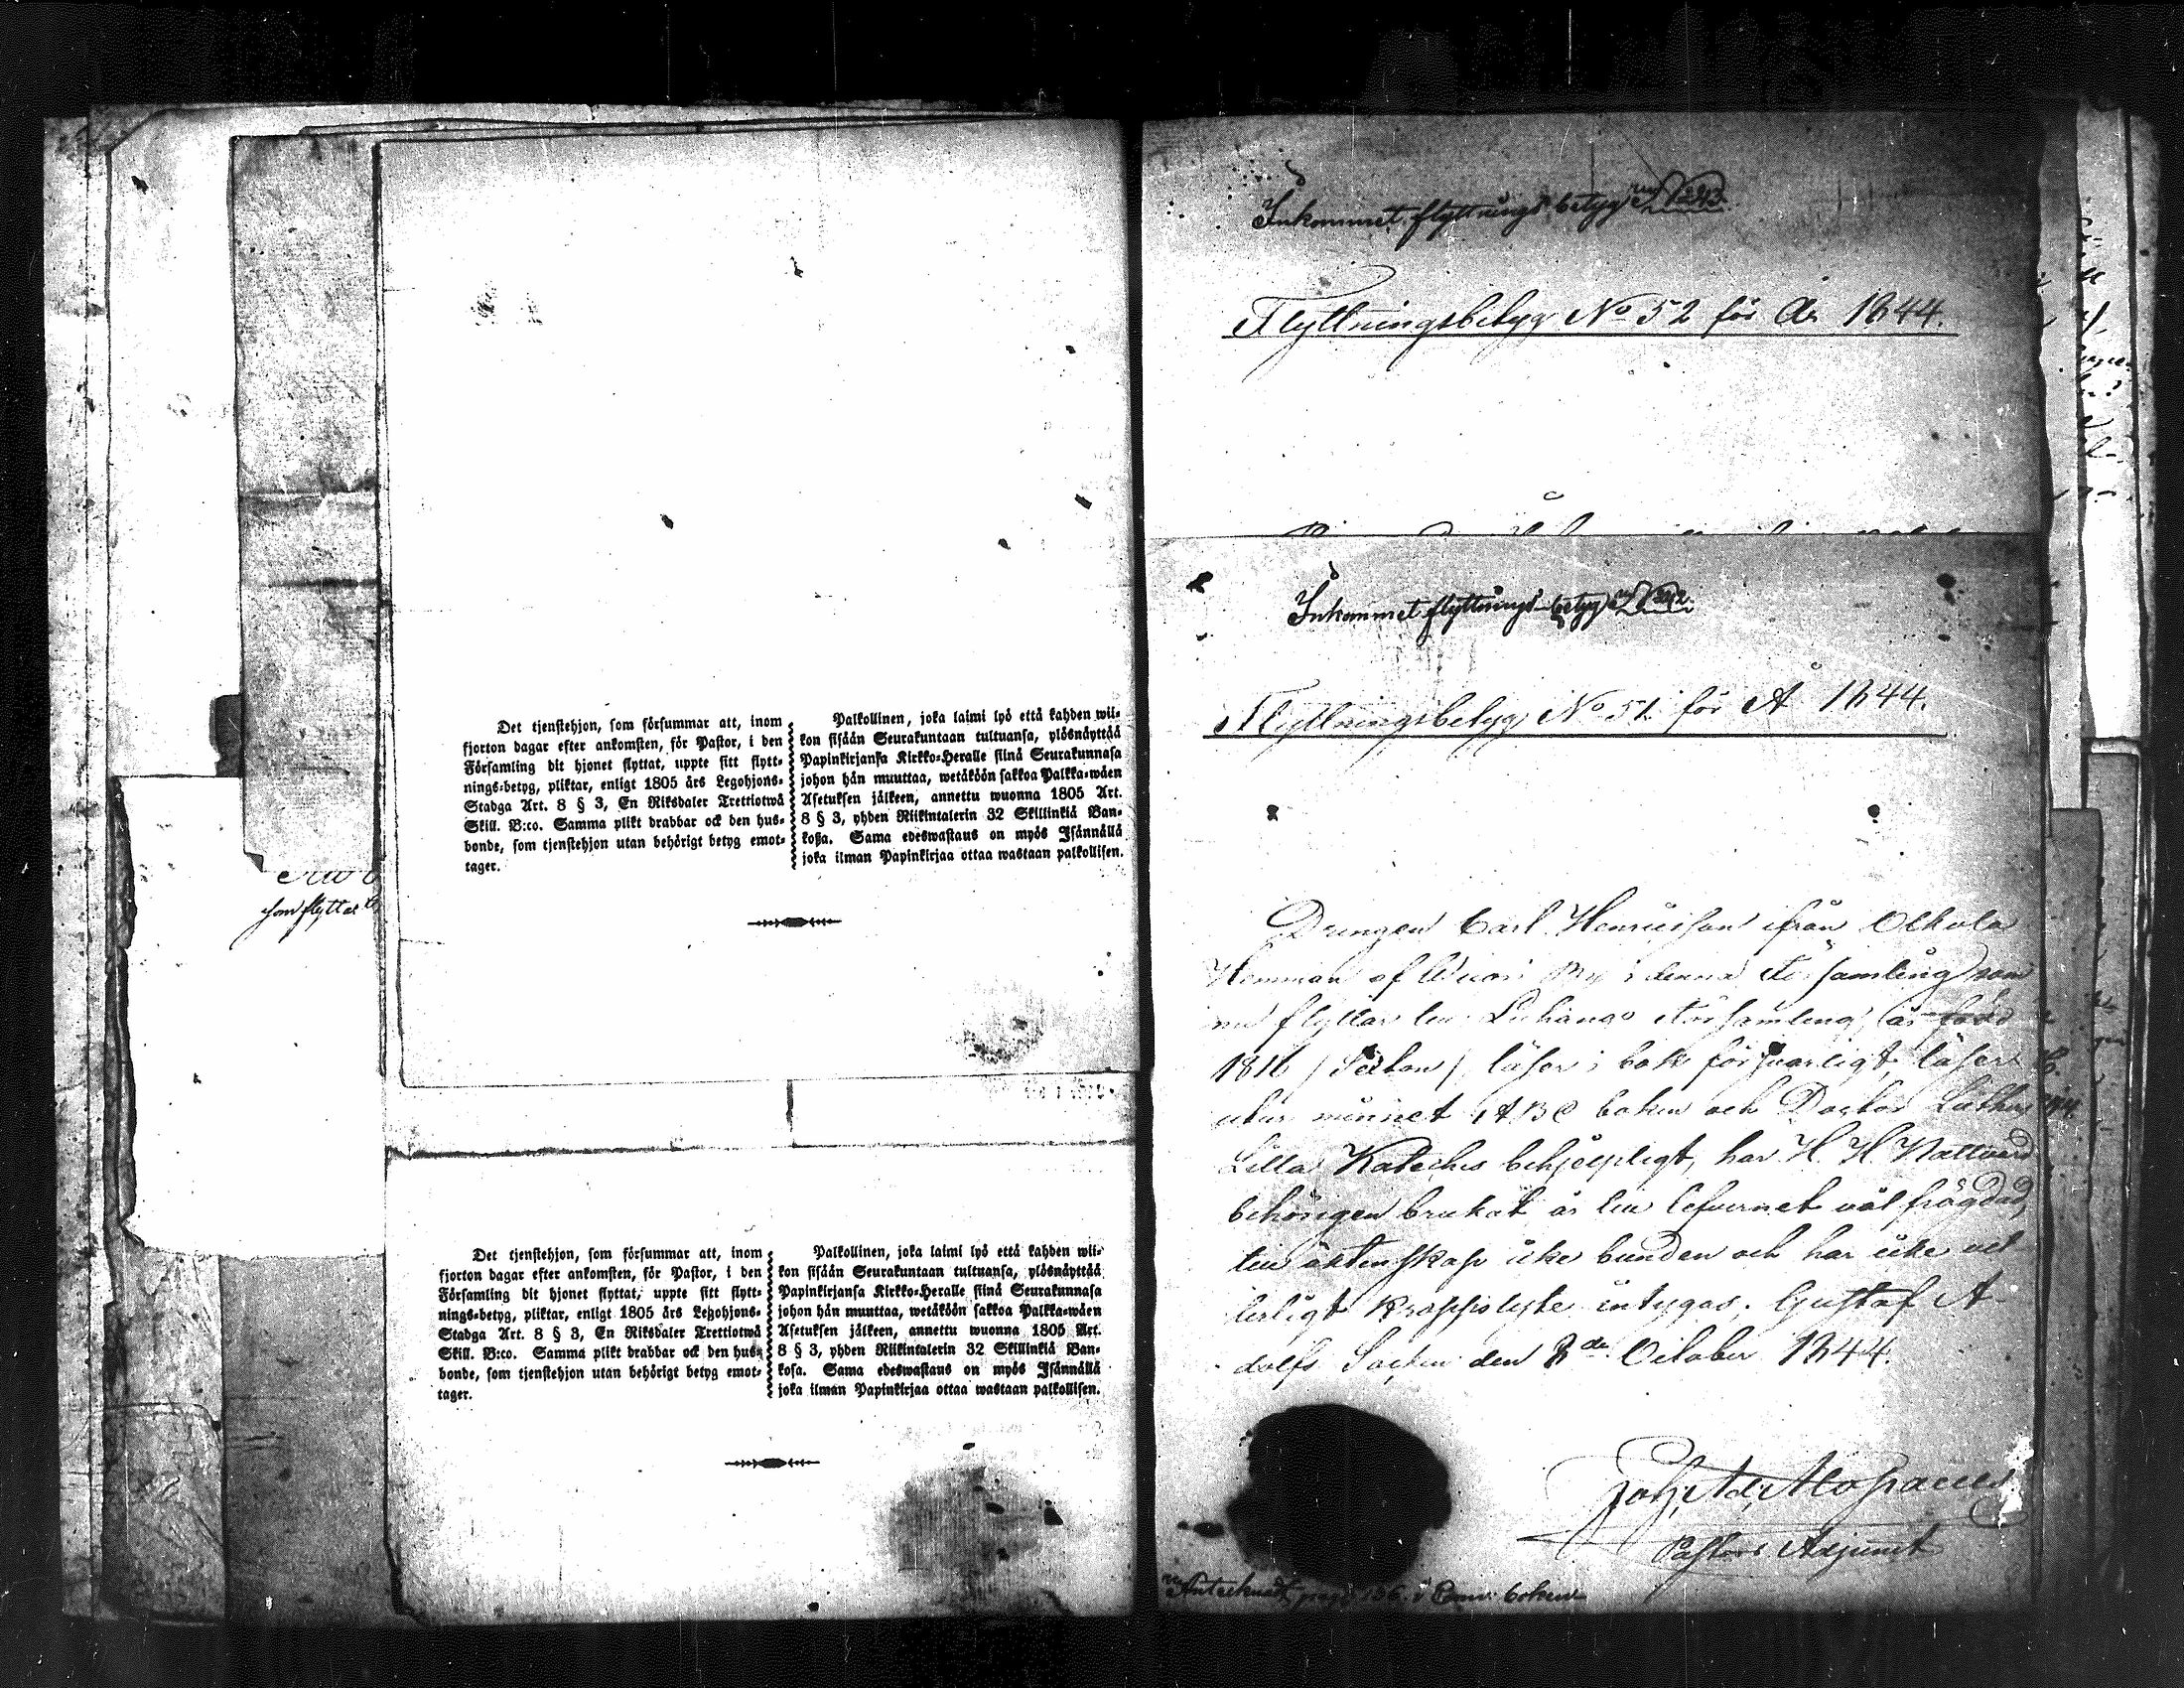 som flyttar
Det tjenstehjon, som försummar att, inom
fjorton dagar efter ankomsten, för Pastor, i den
Församling dit hjonet flyttat, uppte sitt flytt-
nings-betyg, pliktar, enligt 1805 års Legohjons-
Stadga Art. 8 § 3, En Riksdaler Trettiotwå
Skill. B:co. Samma plikt drabbar ock den hus-
bonde, som tjenstehjon utan behörigt betyg emot-
tager.
Palkollinen, joka laimi lyö että kahden wii-
kon sisään Seurakuntaan tultuansa, ylösnäyttää
Papinkirjansa Kirkko-Heralle siinä Seurakunnasa
johon hän muuttaa, wetäköön sakkoa Palkka-wäen
Asetuksen jälkeen, annettu wuonna 1805 Art.
8 § 3, yhden Riikintalerin 32 Skillinkiä Ban-
kosa. Sama edeswastaus on myös Isännällä
joka ilman Papinkirjaa ottaa wastaan palkollisen.
Det tjenstehjon, som försummar att, inom
fjorton dagar efter ankomsten, för Pastor, i den
Församling dit hjonet flyttat, uppte sitt flytt-
nings-betyg, pliktar, enligt 1805 års Legohjons-
Stadga Art. 8 § 3, En Riksdaler Trettiotwå
Skill. B:co. Samma plikt drabbar ock den hus-
bonde, som tjenstehjon utan behörigt betyg emot-
tager.
Palkollinen, joka laimi lyö että kahden wii-
kon sisään Seurakuntaan tultuansa, ylösnäyttää
Papinkirjansa Kirkko-Heralle siinä Seurakunnasa
johon hän muuttaa, wetäköön sakkoa Palkka-wäen
Asetuksen jälkeen, annettu wuonna 1805 Art.
8 § 3, yhden Riikintalerin 32 Skillinkiä Ban-
kosa. Sama edeswastaus on myös Isännällä
joka ilman Papinkirjaa ottaa wastaan palkollisen.
Inkommet flyttnings-betyg
Flyttningsbetyg No 52 för År 1844.
Inkommet flyttnings-betyg
Flyttningsbetyg No 51. för Å 1844.
Drengen Carl Henricsson ifrån Olkola
Hemman af By i denna Församling som
nu flyttar till Luhango Församling, är född
1816 / Sexton / läser i bok försvarligt, läser
utur minnet ABC boken och Doctor Luthers
Lilla Kateches behjelpligt, har H. H. Nattvard
behörigen brukat är till lefvernet väl frägdad,
till äktenskap icke bunden och har icke vet
terligt Kroppslyte intygas, Gustaf A
dolfs Socken den 8de October 1844.
Pastors Adjunct
Antecknadt pag. 136. i Com: boken